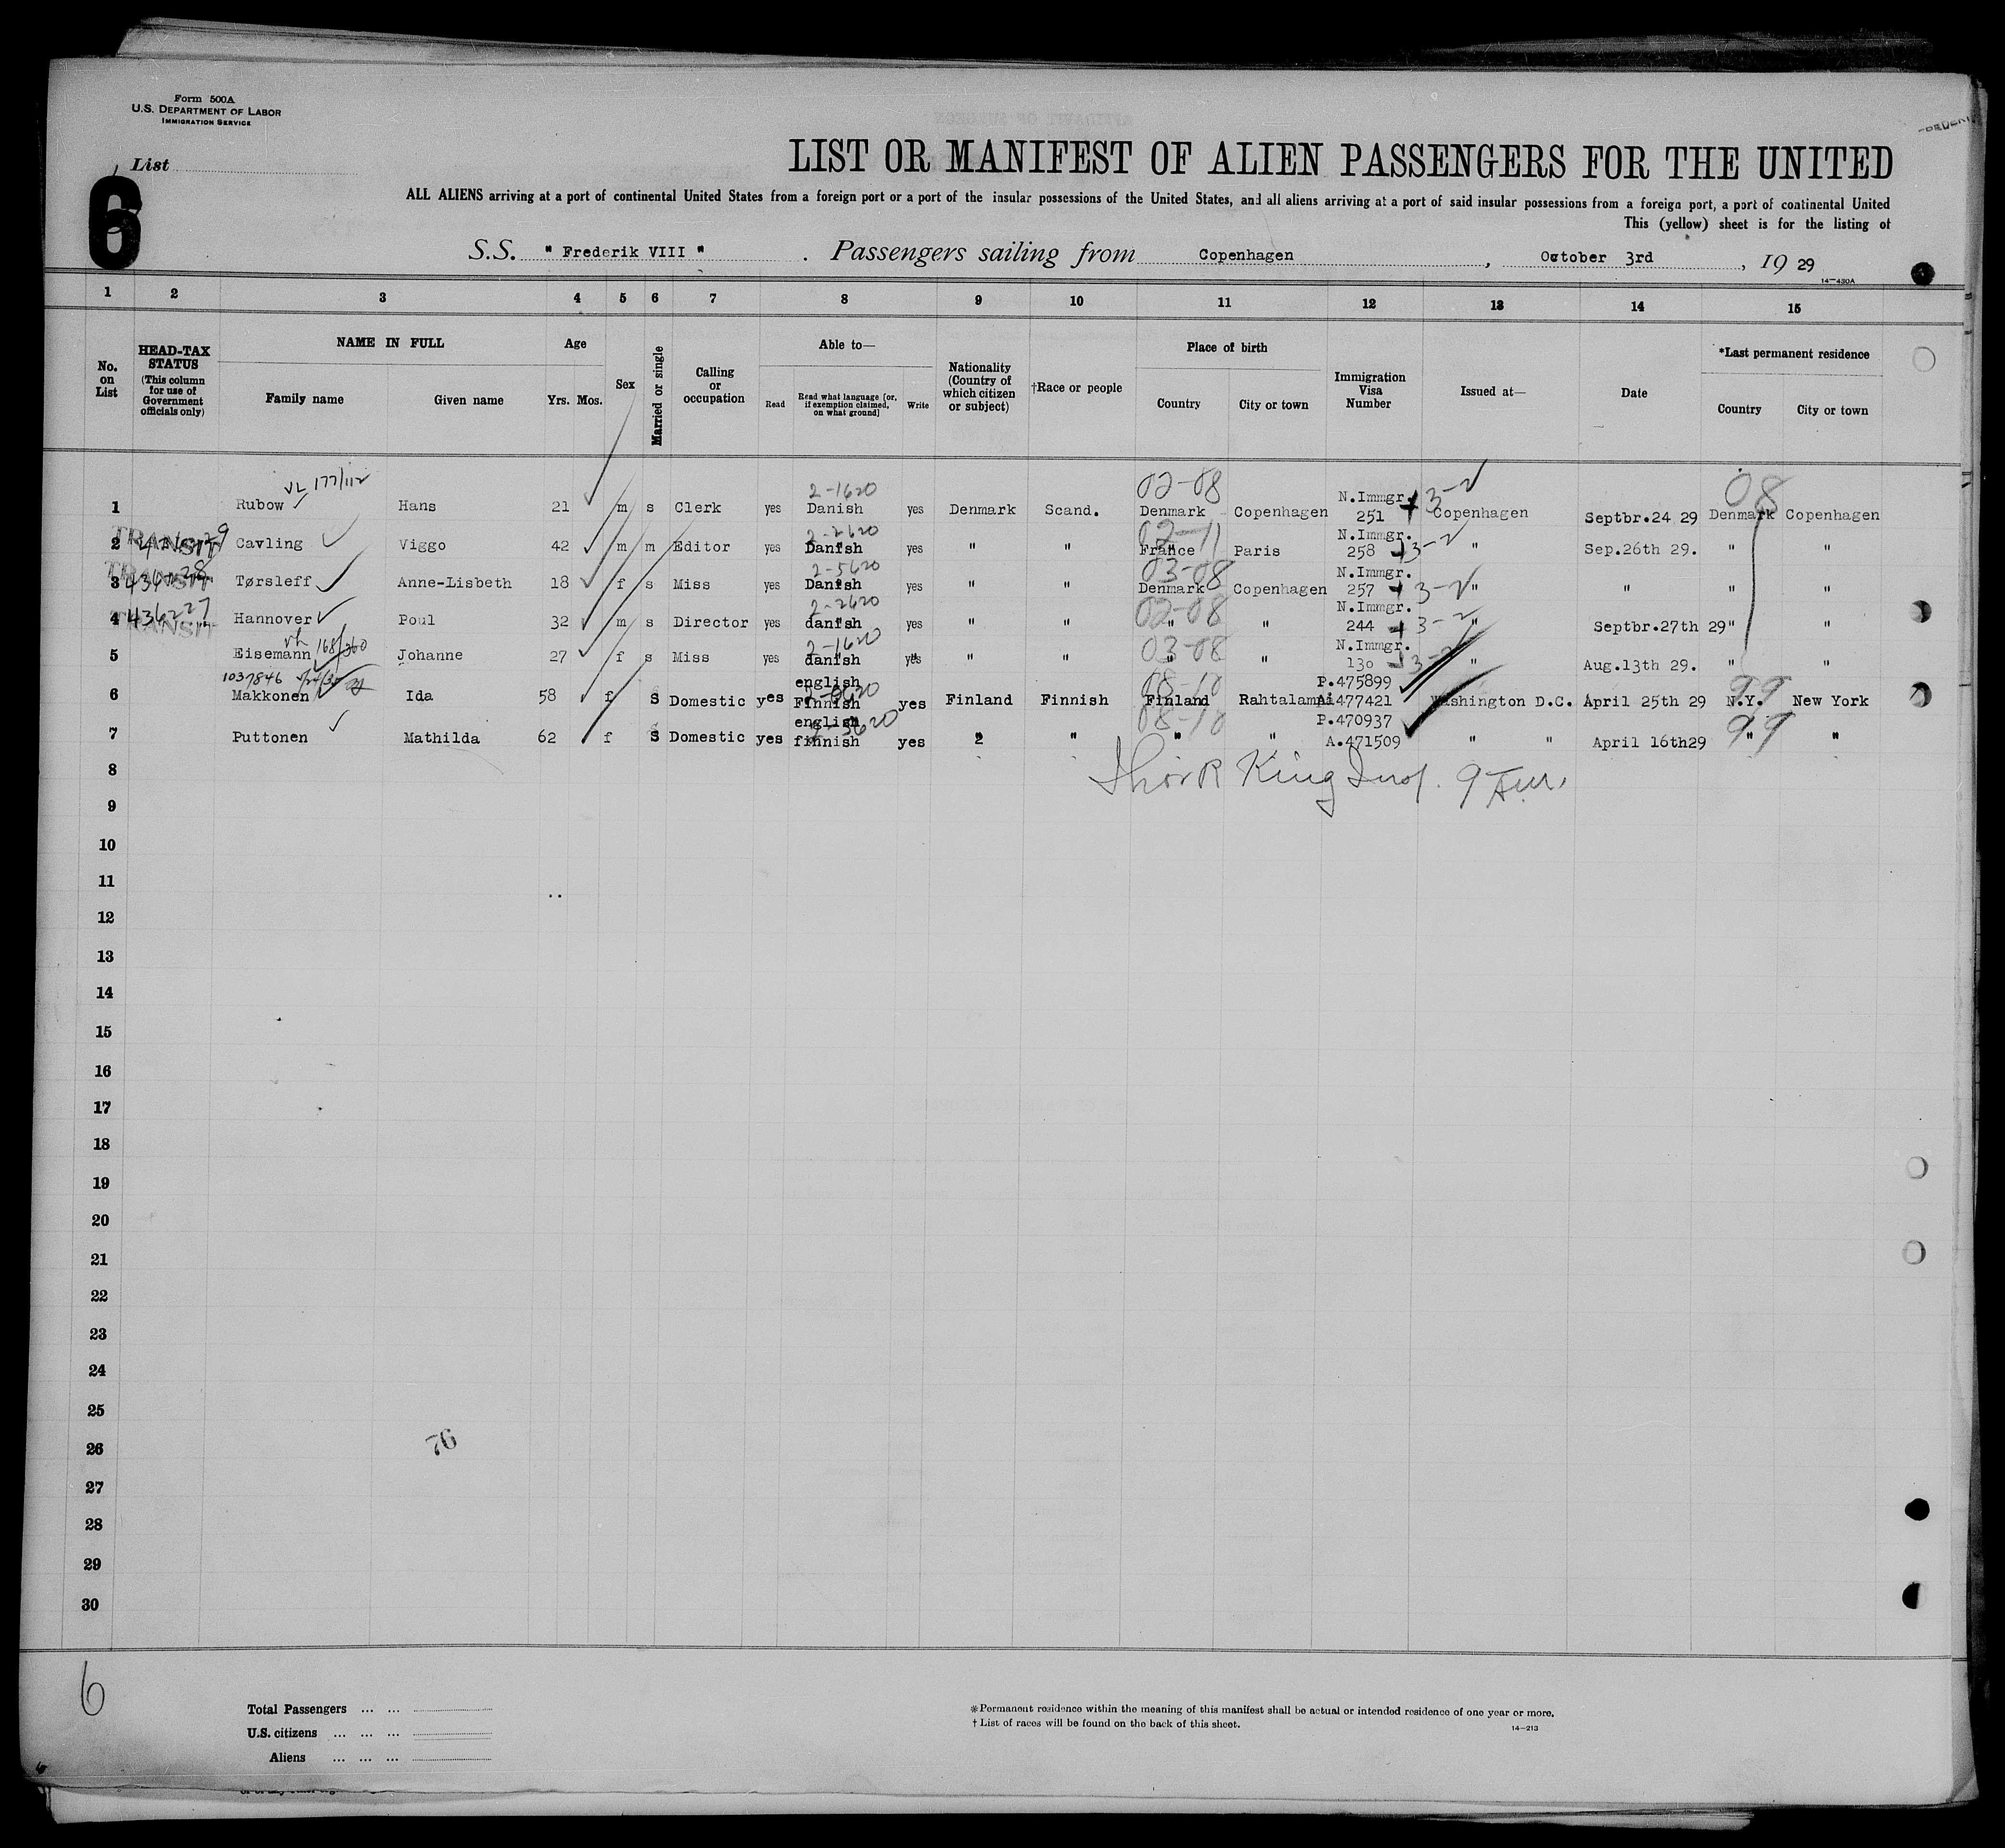 Form 500A
U.S. DEPARTMENT OF LABOR
IMMIGRATION SERVICE
List
6
LIST OR MANIFEST OF ALIEN PASSENGERS FOR THE UNITED
ALL ALIENS arriving at a port of continental United States from a foreign port or a port of the insular possessions of the United States, and all aliens arriving at a port of said insular possessions from a foreign port, a port of continental United
This (yellow) sheet is for the listing of
S.S. " Frederik VIII ". Passengers sailing from Copenhagen, October 3rd, 19 29
14-430A
1 2 3 4 5 6 7 8 9 10 11 12 13 14 15
No. on List
HEAD-TAX STATUS (This column for use of Government officials only)
NAME IN FULL
Family name Given name
Age
Yrs. Mos.
Sex
Married or single
Calling or occupation
Able to—
Read Read what language [or, if exemption claimed, on what ground] Write
Nationality (Country of which citizen or subject)
†Race or people
Place of birth
Country City or town
Immigration Visa Number
Issued at—
Date
*Last permanent residence
Country City or town
177/112 2-1620 02-08 3-2 08
1 Rubow Hans 21 m s Clerk yes Danish yes Denmark Scand. Denmark Copenhagen N.Immgr. 251 Copenhagen Septbr.24 29 Denmark Copenhagen
TRANSIT 2-2620 02-11 3-2
2 Cavling Viggo 42 m m Editor yes Danish yes " " France Paris N.Immgr. 258 " Sep.26th 29. " "
TRANSIT 2-5620 03-08 3-2
3 Tørsleff Anne-Lisbeth 18 f s Miss yes Danish yes " " Denmark Copenhagen N.Immgr. 257 " " " "
436227 TRANSIT 2-2620 02-08 3-2
4 Hannover Poul 32 m s Director yes danish yes " " " " N.Immgr. 244 " Septbr.27th 29 " "
168/360 2-1620 03-08 3-2
5 Eisemann Johanne 27 f s Miss yes danish yes " " " " N.Immgr. 130 " Aug.13th 29. " "
1037846 08-10 99
6 Makkonen Ida 58 f S Domestic yes english Finnish yes Finland Finnish Finland Rahtalampi P.475899 477421 Washington D.C. April 25th 29 N.Y. New York
08-10 99
7 Puttonen Mathilda 62 f S Domestic yes english finnish yes " " " " P.470937 A.471509 " " April 16th29 " "
8
King
9
10
11
12
13
14
15
16
17
18
19
20
21
22
23
24
25
26
76
27
28
29
30
6
Total Passengers ... ...
U.S. citizens ... ... ...
Aliens ... ... ...
*Permanent residence within the meaning of this manifest shall be actual or intended residence of one year or more.
† List of races will be found on the back of this sheet.
14-213